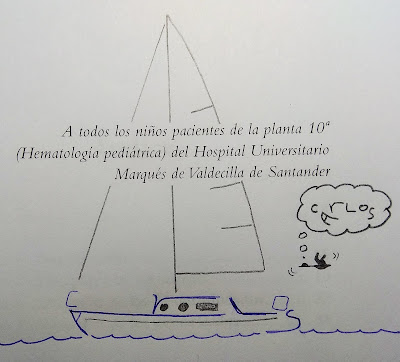 A todos los niños pacientes de la planta 10ª
(Hematología pediátrica) del Hospital Universitario
Marqués de Valdecilla de Santander
CARLOS